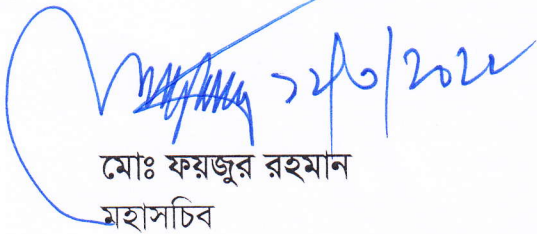 ১২/৩/২০২২
মোঃ ফয়জুর রহমান
মহাসচিব